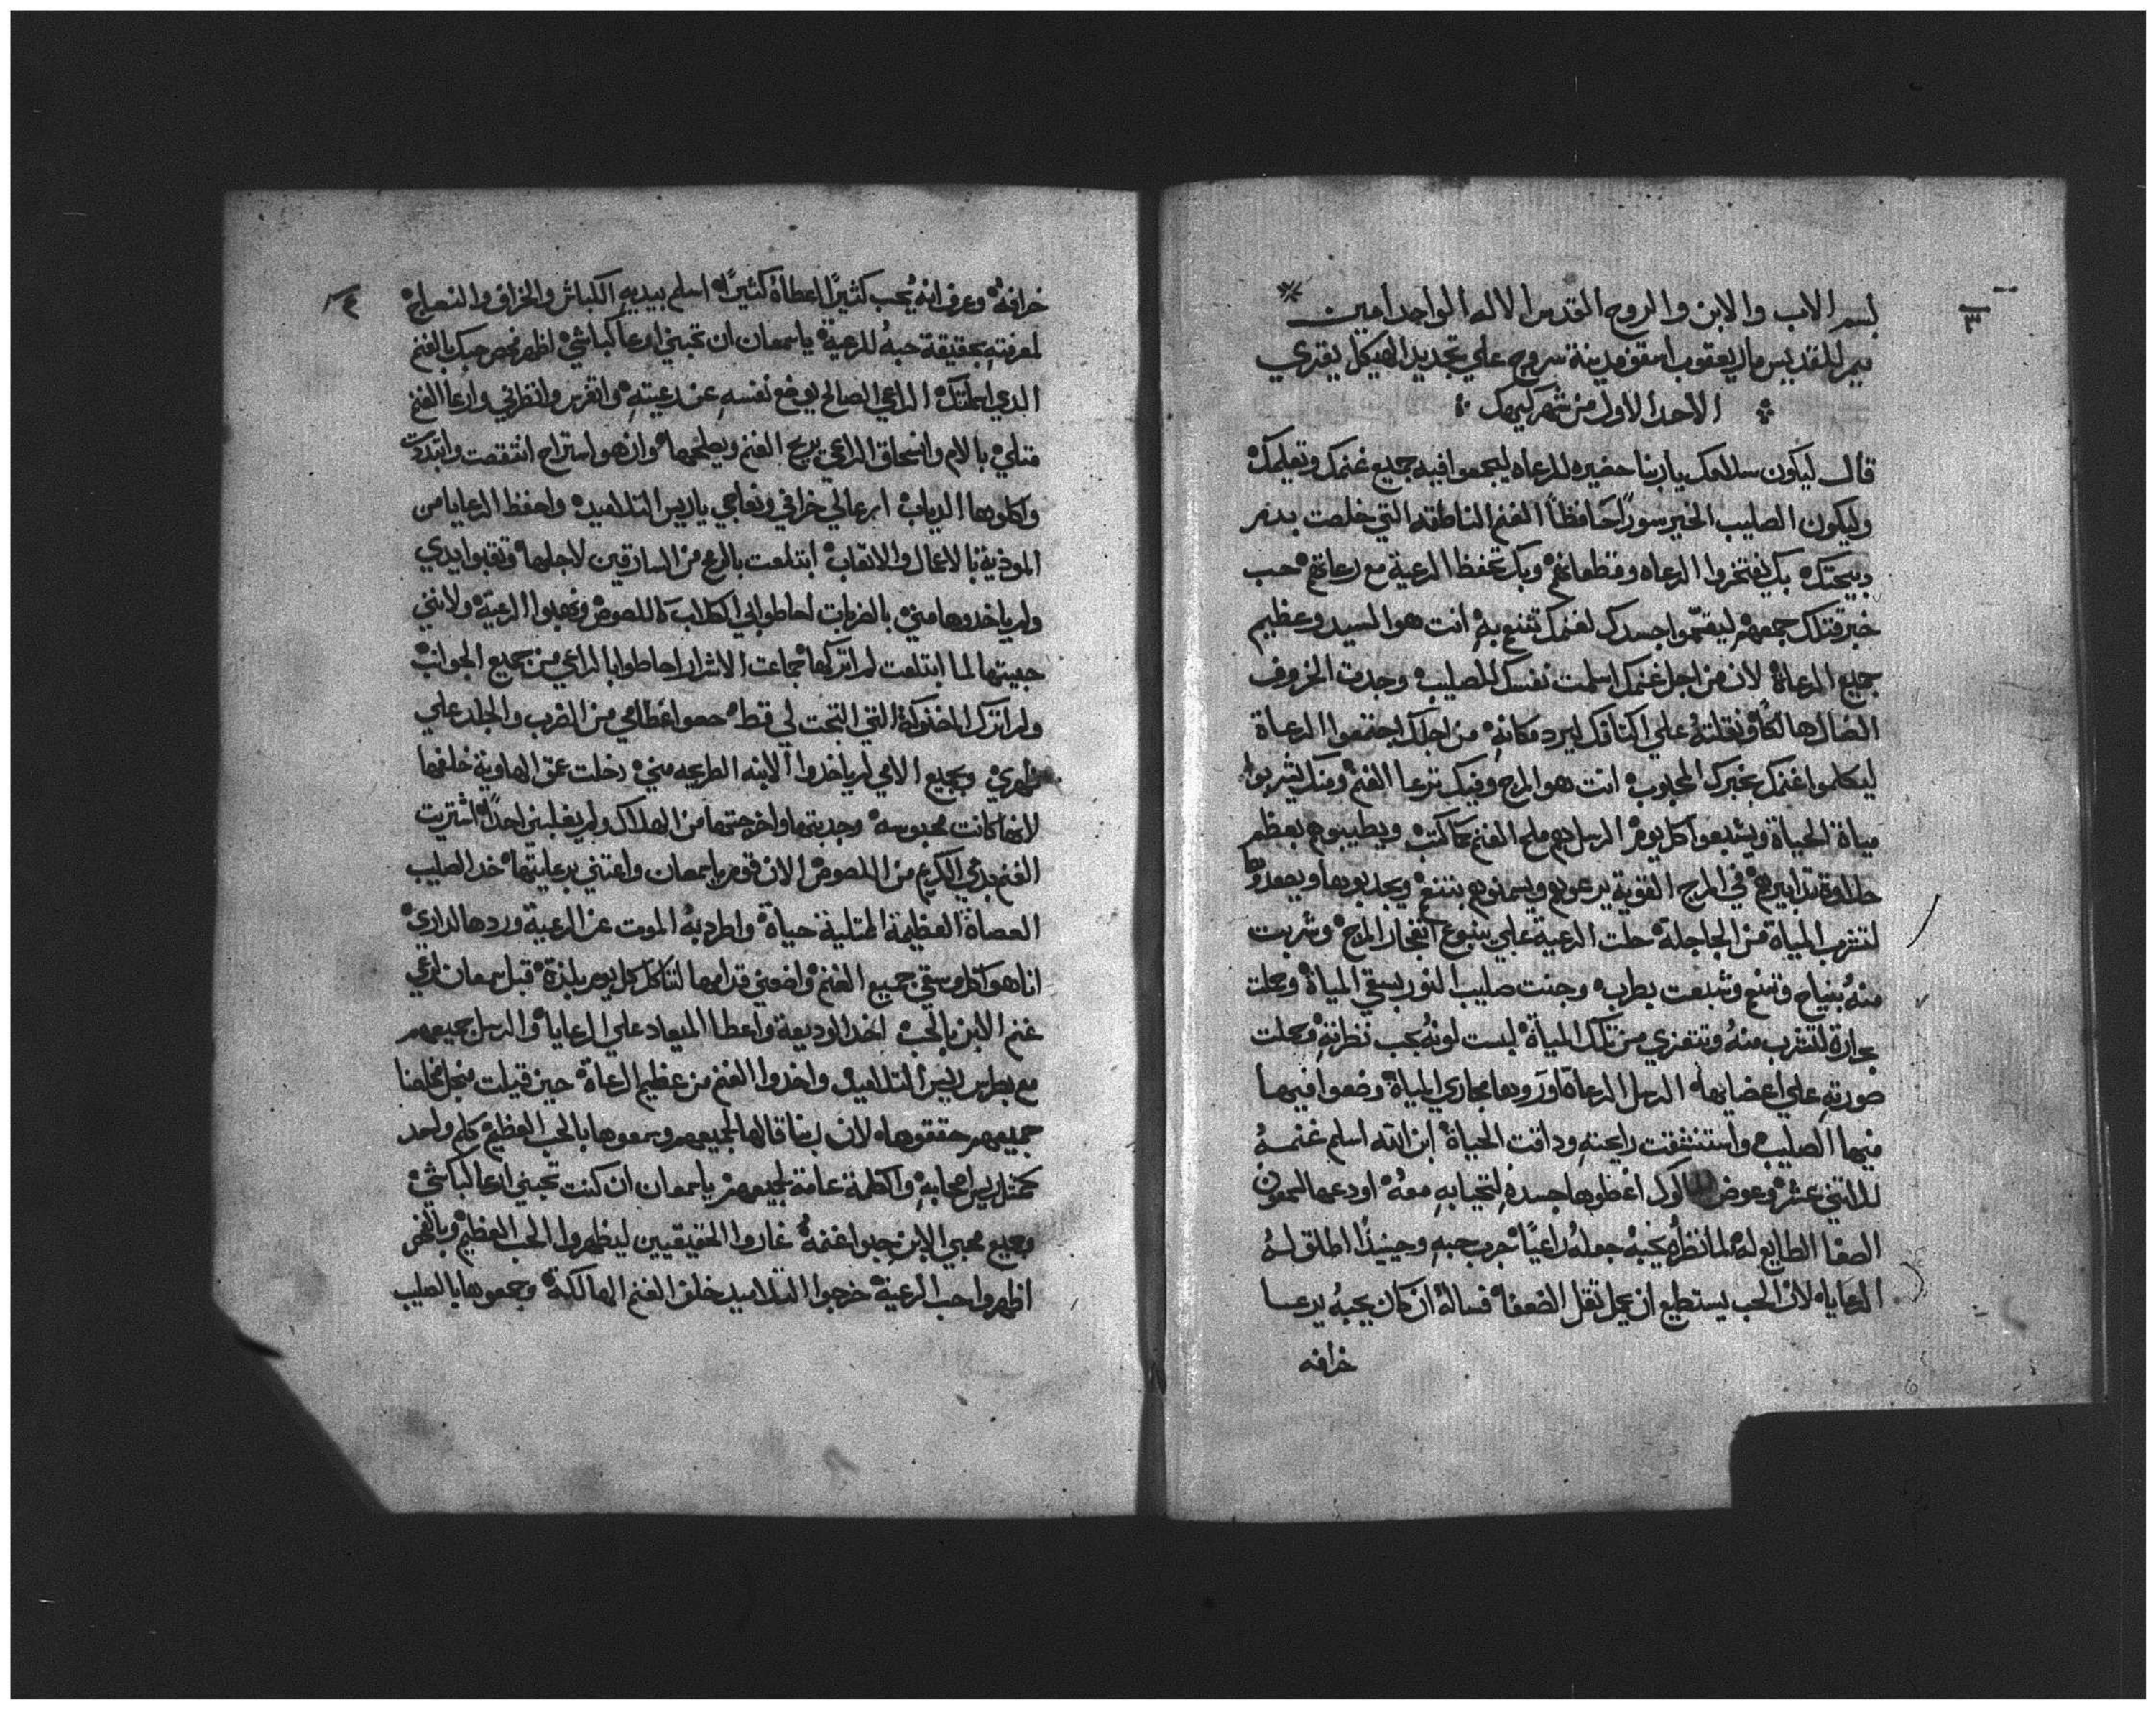 ٣
بسم الاب والابن والروح القدس الاله الواحد امين
ميمر للقديس ماري يعقوب اسقف مدينة سروج علي تجديد الهيكل يقري
الاحد الاول من شهر كيهك
قال ليكون سلامك يا ربنا حضيره للرعاه ليجمعوا فيه جميع غنمك وتعليمك
وليكون الصليب الخير سورًا حافظًا الغنم الناطقه التي خلصت بدم
دبيحتك بك يفتخروا الرعاه وقطعانهم وبك تحفظ الرعية مع رعاتهم حب
خبر قتلك جمعهم ليقسموا جسدك لغنمك تتنعم به انت هو السيد وعظيم
جميع الرعاة لان من اجل غنمك اسلمت نفسك للصليب وجدت الخروف
الضال هالكًا ونقلته علي اكتافك ليرد مكانه من اجلك اجتمعوا الرعاة
ليكلموا غنمك بخبرك المحبوب انت هو المرج وفيك ترعا الغنم ومنك يشربوا
مياة الحياة ويشبعوا كل يوم الرسل هم ملح الغنم كما كتب ويطيبوهم بعظم
حلاوة تدابيرهم في المرج القوية يرعوهم ويسمنوهم بتنعم ويجدبوها ويصعدوها
لتشرب المياة من الجاجلة حلت الرعية علي ينبوع انفجار المرج وشربت
منه بنياح وتنعم وشبعت بطرب وجنت صليب النور يسقي المياة وحملت
بحرارة لتشرب منه وتتعزي من تلك المياة لبست لونه بحب نظرته وحملت
صورته علي اعضايها الرسل الرعاة اوردوها مجاري المياة وضعوا فيها
فيها الصليب واستنشقت رايحته وداقت الحياة ابن الله اسلم غنمه
للاتني عشر وعوض الماكول اعطوها جسده لتحيا به معه اودعها لسمعون
الصفا الطايع له لما نظره يحبه جعله راعيًا جرب حبه وحينيدًا اطلق له
الرعايا لان الحب يستطيع ان يحمل تقل الضعفا فساله ان كان يحبه يرعا
خرافه
٤
خرافه وعرف انه يحب كثيرًا اعطاه كثيرًا اسلم بيديه الكباش والخراف والنعاج
لمعرفته بحقيقة حبه للرعية يا سمعان ان تحبني ارعا كباشي اظهر فحص حبك بالغنم
الدي اسلمتك الراعي الصالح يوضع نفسه عن رعيته واتفرس وانظرني وارعا الغنم
متلي بالام وانسحاق الراعي يريح الغنم ويصلحها وان هو استراح انتقصت واتبددت
واكلوها الدياب ارعا لي خرافي ونعاجي يا ريس التلاميد واحفظ الرعايا من
الموذية بالاعمال والاتعاب ابتلعت بالرعي من السارقين لاجلها وتقبوا ايدي
ولم ياخدوها مني بالضربات احاطوا بي الكلاب اللصوص ونهبوا الرعية ولانني
حبيتها لما ابتلعت لم اتركها جماعت الاشرار احاطوا بالراعي من جميع الجوانب
ولم اترك المخنوكة التي التجت لي قط حصوا عظامي من الضرب والجلد علي
ظهري وبجميع الامي لم ياخدوا الابنه الطريحه مني دخلت عمق الهاوية خلفها
لانها كانت محبوسه وجدبتها واخرجتها من الهلاك ولم يغلبني احدًا اشتريت
الغنم بدمي الكريم من اللصوص الان قوم يا سمعان واعتني برعايتها خد الصليب
العصاة العظيمة الممتلية حياة واطرد به الموت عن الرعية وردها لداري
انا هو اكل وسقي جميع الغنم واضعني قدامها لتاكل كل يوم بلدة قبل سمعان رعي
غنم الابن بالحب اخد الوديعة واعطا الميعاد علي الرعايا والرسل جميعهم
مع بطرس ريس التلاميد واخدوا الغنم من عظيم الرعاة حين قيلت من اجل مخلصنا
جميعهم حققوها لان ربنا قالها لجميعهم وسمعوها بالحب العظيم كلم واحد
كمتل ريس اصحابه والكلمة عامة لجميعهم يا سمعان ان كنت تحبني ارعا كباشي
وجميع محبي الابن حبوا غنمه غاروا الحقيقيين ليظهروا الحب العظيم وبالغنم
اظهروا حب الرعية خرجوا التلاميد خلف الغنم الهالكة وجمعوها بالصليب